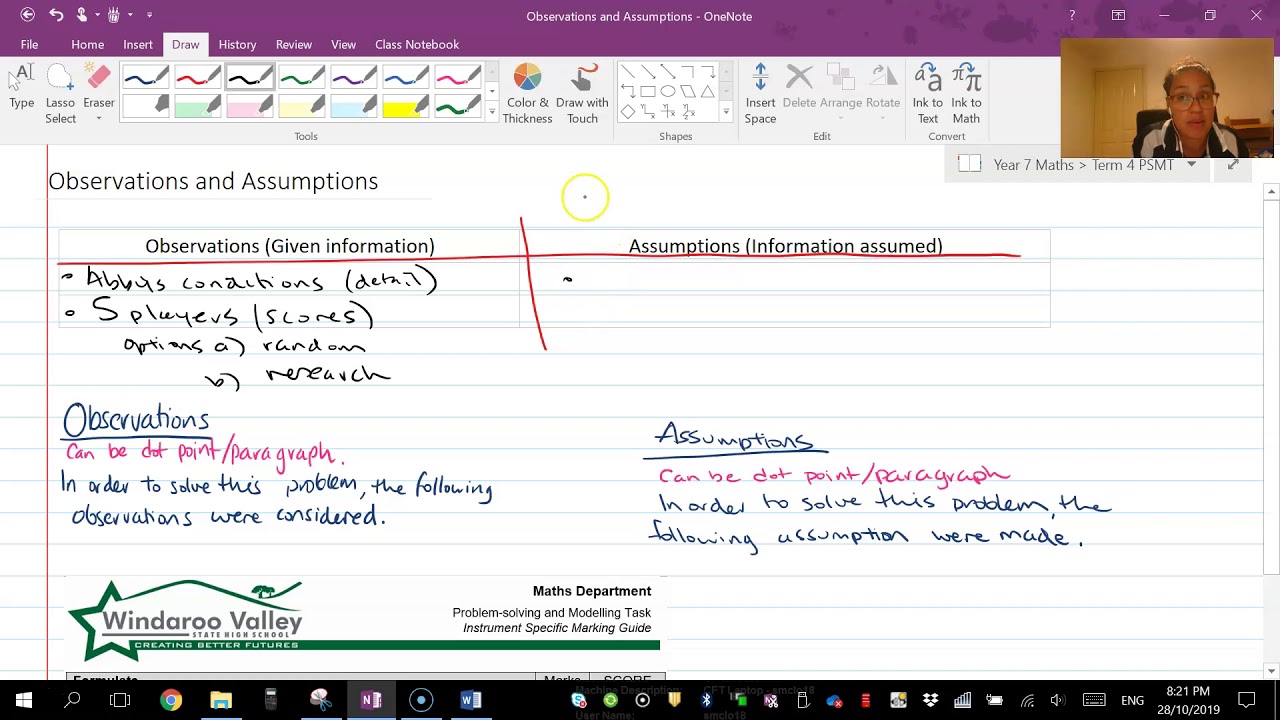 Observations and Assumptions - OneNote
?
File Home Insert Draw History Review View Class Notebook
Type
Lasso Select
Eraser
Color & Thickness
Draw with Touch
Insert Space
Delete
Arrange
Rotate
Ink to Text
Ink to Math
Tools
Shapes
Edit
Convert
Year 7 Maths > Term 4 PSMT
Observations and Assumptions
Observations (Given information)
Assumptions (Information assumed)
• Abbys conditions (detail)
•
• 5 players (scores)
options a) random
b) research
Observations
Can be dot point/paragraph.
In order to solve this problem, the following
observations were considered.
Assumptions
Can be dot point/paragraph
In order to solve this problem, the
following assumption were made.
Windaroo Valley
STATE HIGH SCHOOL
CREATING BETTER FUTURES
Maths Department
Problem-solving and Modelling Task
Instrument Specific Marking Guide
Formulate
Marks
SCORE
Machine Description: CFT Laptop - smclo18
User Name: smclo18
ENG
8:21 PM
28/10/2019